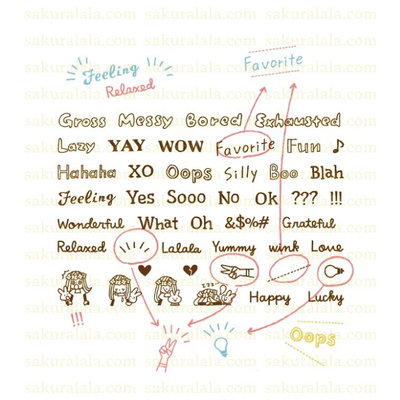 sakuralala.com sakuralala.com sakuralala.com
Feeling Relaxed
Favorite
Gross Messy Bored Exhausted
Lazy YAY WOW Favorite Fun ♪
Hahaha XO Oops Silly Boo Blah
Feeling Yes Sooo No Ok ??? !!!
Wonderful What Oh &$%# Grateful
Relaxed Lalala Yummy wink Love
Happy Lucky
!!!
Oops
sakuralala.com sakuralala.com sakuralala.com